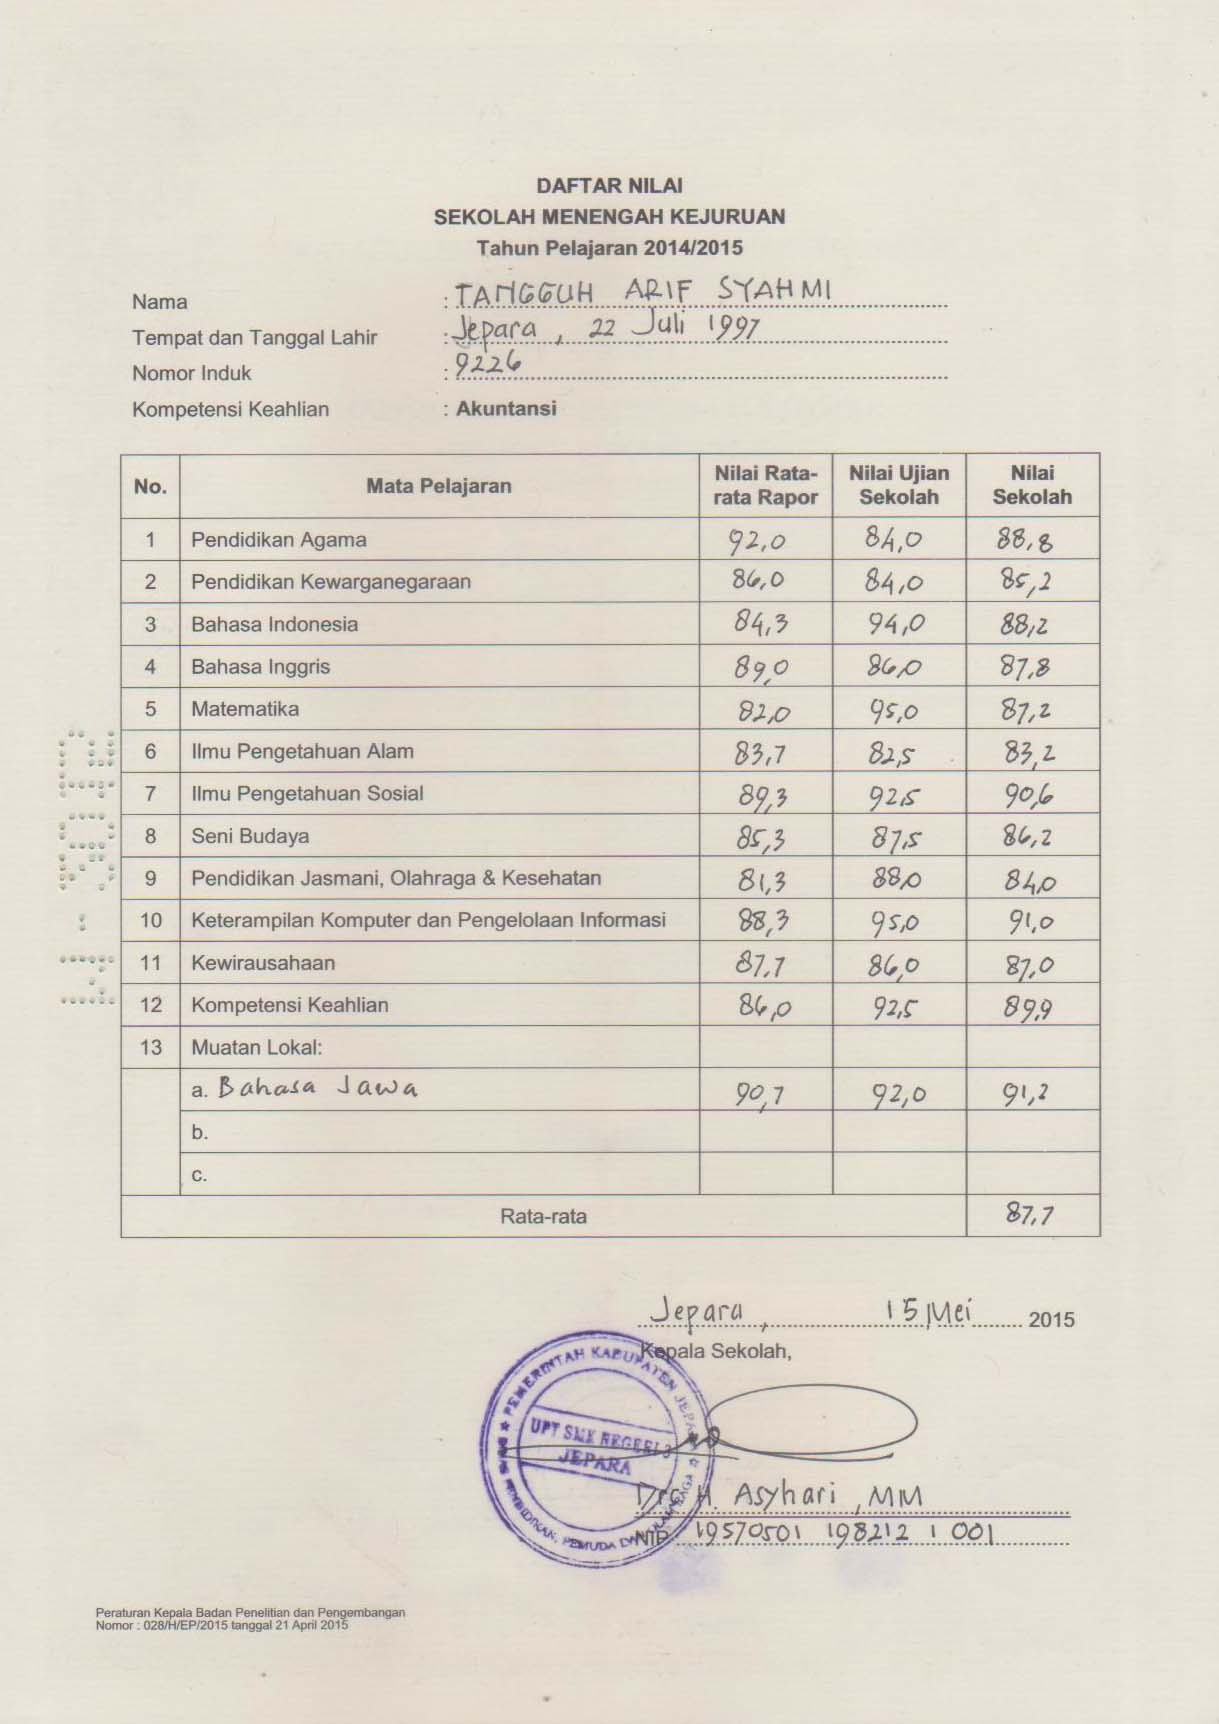 DAFTAR NILAI
SEKOLAH MENENGAH KEJURUAN
Tahun Pelajaran 2014/2015
Nama : TANGGUH ARIF SYAHMI
Tempat dan Tanggal Lahir : Jepara, 22 Juli 1997
Nomor Induk : 9226
Kompetensi Keahlian : Akuntansi
No. Mata Pelajaran Nilai Rata-rata Rapor Nilai Ujian Sekolah Nilai Sekolah
1 Pendidikan Agama 92,0 84,0 88,8
2 Pendidikan Kewarganegaraan 86,0 84,0 85,2
3 Bahasa Indonesia 84,3 94,0 88,2
4 Bahasa Inggris 89,0 86,0 87,8
5 Matematika 82,0 95,0 87,2
6 Ilmu Pengetahuan Alam 83,7 82,5 83,2
7 Ilmu Pengetahuan Sosial 89,3 92,5 90,6
8 Seni Budaya 85,3 87,5 86,2
9 Pendidikan Jasmani, Olahraga & Kesehatan 81,3 88,0 84,0
10 Keterampilan Komputer dan Pengelolaan Informasi 88,3 95,0 91,0
11 Kewirausahaan 87,7 86,0 87,0
12 Kompetensi Keahlian 86,0 92,5 89,9
13 Muatan Lokal:
a. Bahasa Jawa 90,7 92,0 91,2
b.
c.
Rata-rata 87,7
Jepara, 15 Mei 2015
Kepala Sekolah,
PEMERINTAH KABUPATEN JEPARA
UPT SMK NEGERI 3
JEPARA
PENDIDIKAN, PEMUDA DAN OLAHRAGA
Drs. H. Asyhari, MM
NIP. 19570501 198212 1 001
Peraturan Kepala Badan Penelitian dan Pengembangan
Nomor : 028/H/EP/2015 tanggal 21 April 2015